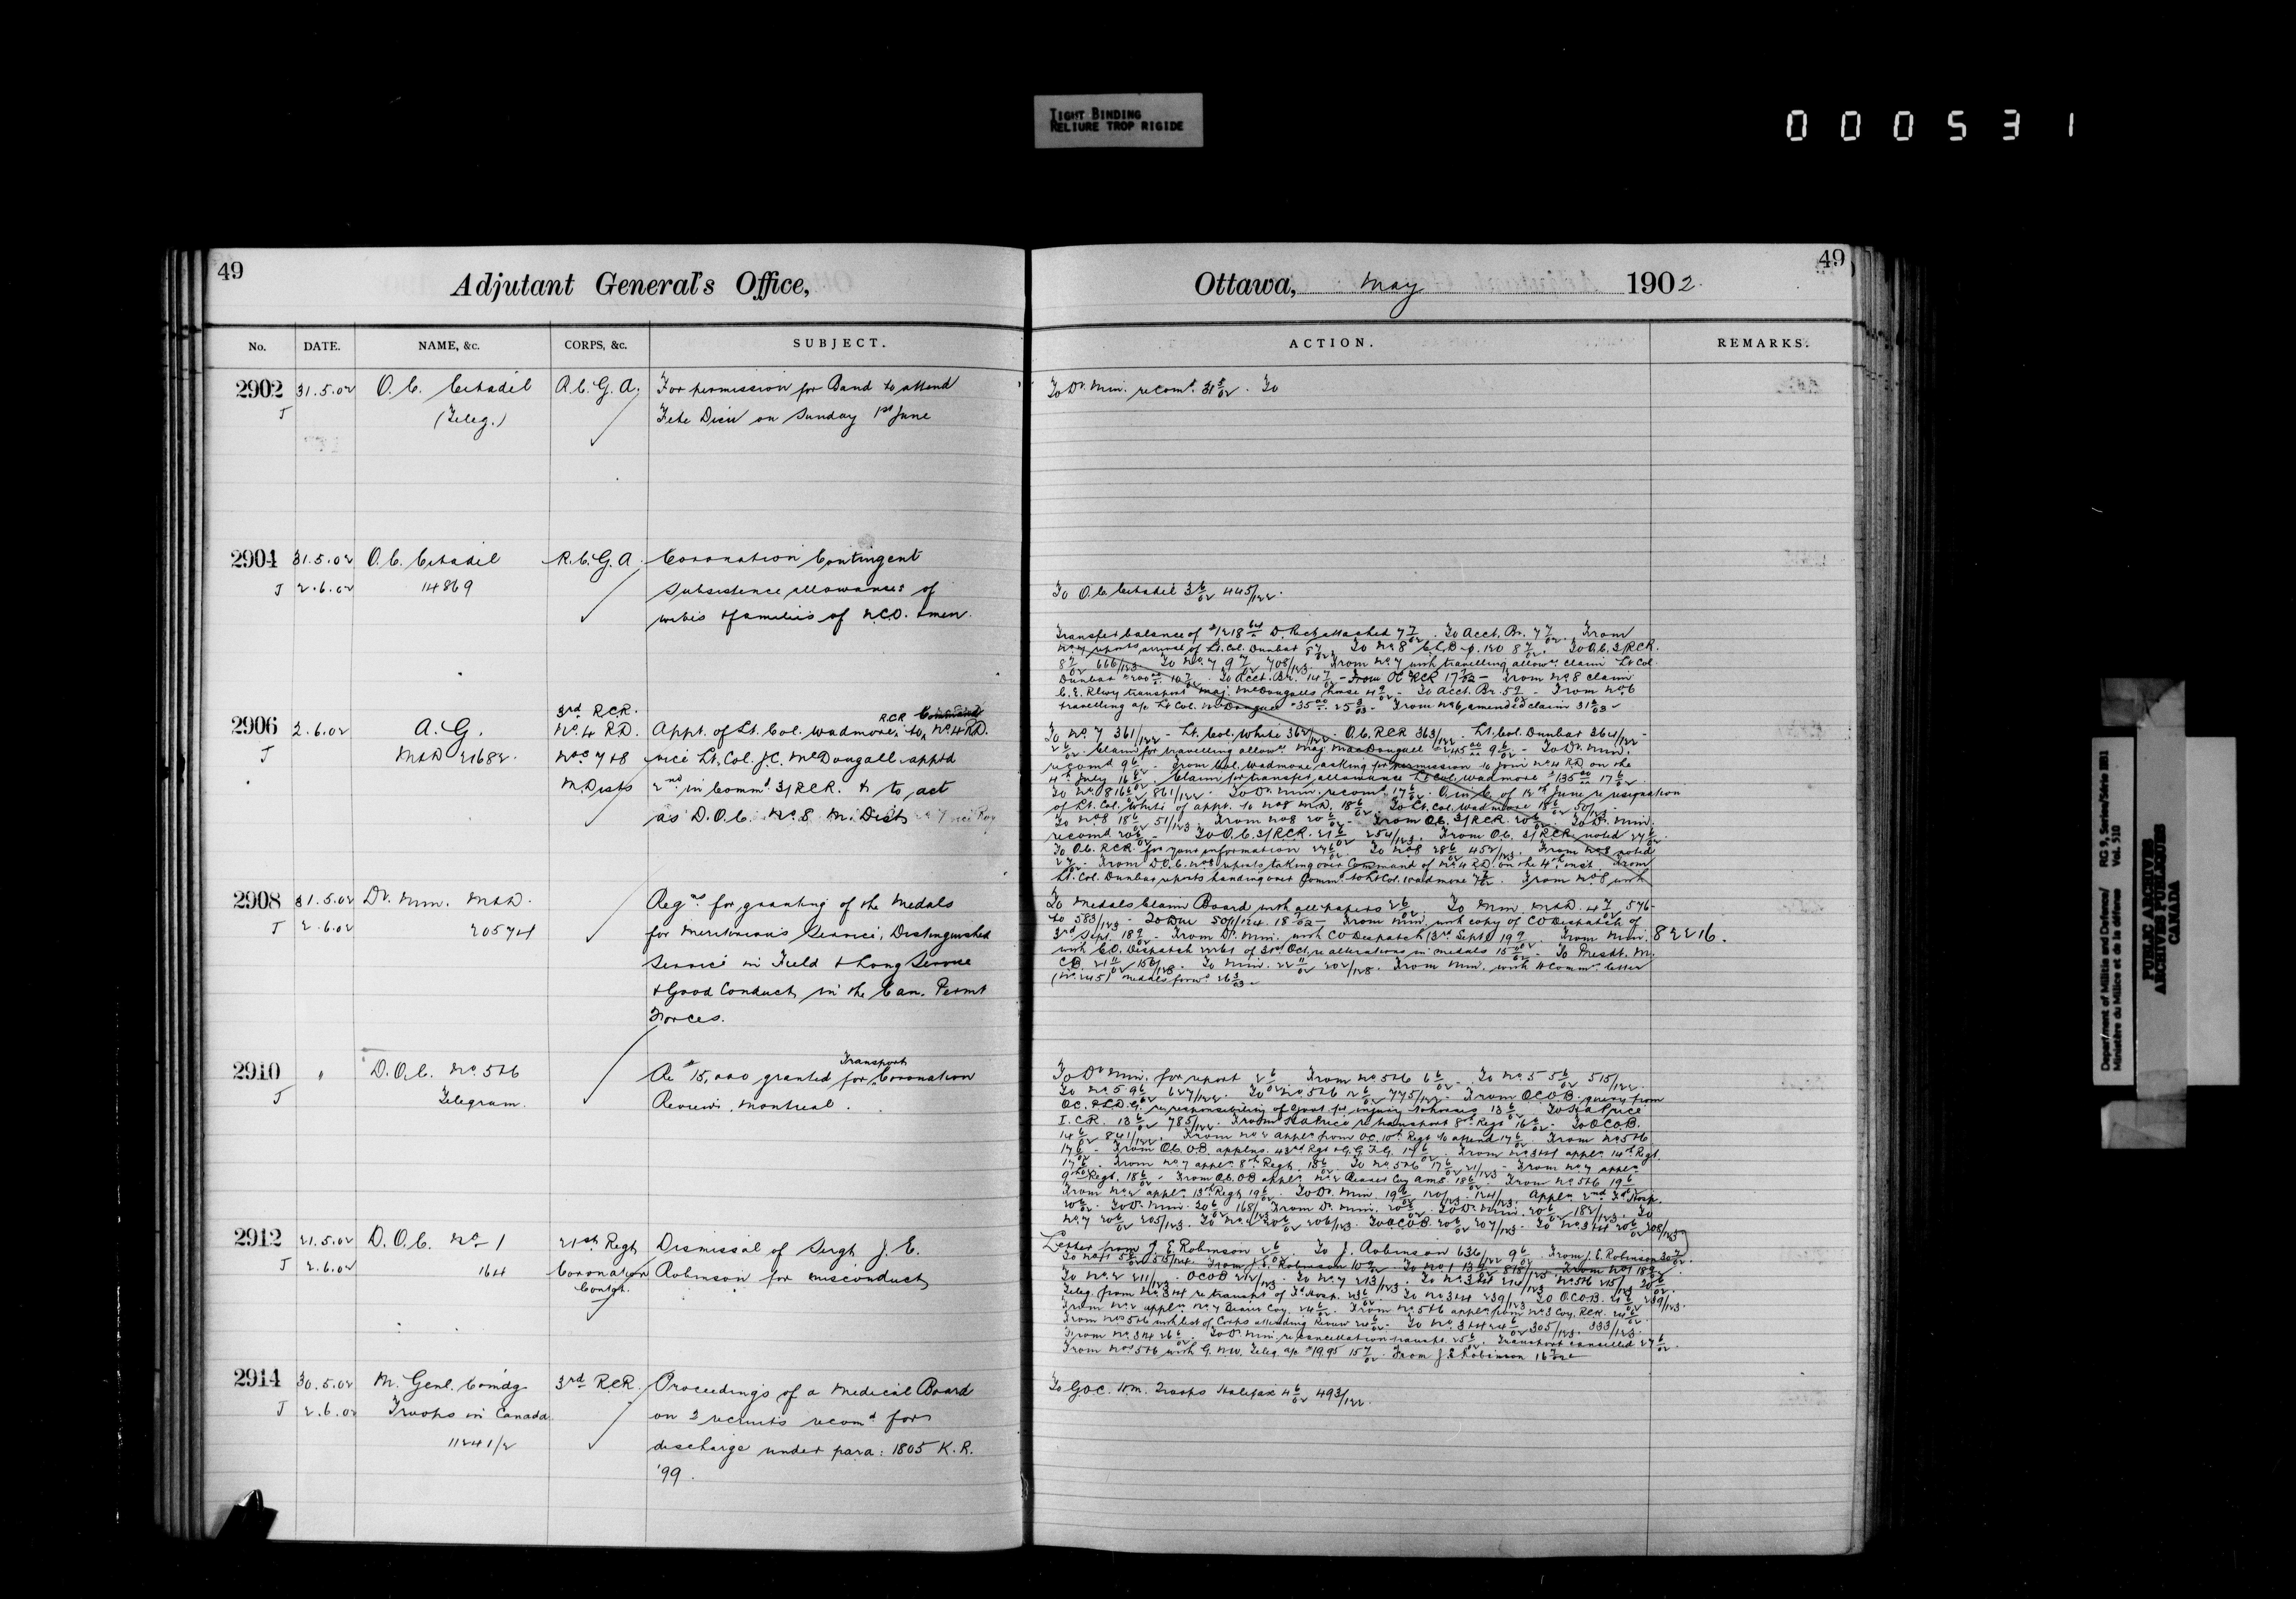 TIGHT BINDING
RELIURE TROP RIGIDE
000531
49
Adjutant General's Office,
No. DATE. NAME, &c. CORPS, &c. SUBJECT.
2902 31.5.02 O.C. Citadel R.C.G.A. For permission for Band to attend
J (Teleg.) Fete Dieu on Sunday 1st June
2904 31.5.02 O.C. Citadel R.C.G.A. Coronation Contingent
J 2.6.02 14869 Subsistence allowances of
wives & families of N.C.O. & men.
3rd R.C.R. R.C.R. Command
2906 2.6.02 A.G. No. 4 R.D. Appt. of Lt. Col. Wadmore, to No 4 R.D.
J M&D 21682 Nos 7 & 8 vice Lt. Col. J.C. McDougall apptd
M. Dists 2nd in Commd 3/RCR. & to act
as D.O.C. No. 8 M. Dist
2908 31.5.02 Dr. Min. M&D. Regns for granting of the Medals
J 2.6.02 20574 for Meritorious Service, Distinguished
Service in Field & Long Service
& Good Conduct, in the Can. Permt
Forces.
Transport
2910 " D.O.C. No. 5&6 Re $15,000 granted for Coronation
J Telegram. Review, Montreal.
2912 21.5.02 D.O.C. No 1 21st Regt Dismissal of Sergt J. E.
J 2.6.02 164 Coronation Robinson for misconduct
Contgt.
2914 30.5.02 M. Genl. Comdg 3rd RCR. Proceedings of a Medical Board
J 2.6.02 Troops in Canada on 2 recruits recomd for
11241/2 discharge under para: 1805 K.R.
'99.
49
Ottawa, May 1902.
ACTION. REMARKS.
To Dr. Min. recomd. 31 5/02. To
To O.C. Citadel 3 6/02 445/122.
Transfer balance of $1218 64 D. Rect attached 7 7/02. To Acct. Br. 7 7/02. From
No 7 reports arrival of Lt. Col. Dunbar 8 7/02. To No 8 To O.C. 3/RCR.
8 7/02 666/123. To No. 7 9 7/02 708/123. From No 7 with travelling allowce claim Lt Col.
Dunbar To Acct. Br. 14 7/02 - From OC RCR 17 7/02 - From No 8 claim
C.E. Rlwy transport Maj. McDougalls horse 4 9/02 - To Acct. Br. 5 9/02 - From No 6
travelling a/c Lt Col. McDougall $35 00 - From No 6, amended claim 31 3/03
To No 7 361/122 - Lt. Col. White 362/122. O.C. RCR 363/122. Lt. Col. Dunbar 364/122 -
2 6/02. Claim for travelling allowce Maj. MacDougall $245 9 6/02 - To Dr. Min.
recomd 9 6/02 - From Col. Wadmore, asking for permission to join No 4 RD on the
4th July 16 6/02. Claim for transfer allowance Lt Col. Wadmore $135 00 17 6/02.
To No. 8 16 6/02 861/122 - To Dr. Min. recomd 17 6/02. O in C. of 12th June re resignation
of Lt. Col. White of appt. to No 8 M.D. 18 6/02. To Lt. Col. Wadmore 18 6/02 50/123
To No 8 18 6/02 51/123. From No 8 20 6/02 - From OC. 3/RCR. 20 6/02. To Dr. Min.
recomd 20 6/02 - To O.C. 3/RCR. 21 6/02 254/123. From OC. 3/RCR. noted 27 6/02.
To O.C. RCR for your information 27 6/02 To No 8 28 6/02 452/123. From No 8 noted
2 7/02 - From D.O.C. No 8 reports taking over Command of No. 4 R.D. on the 4th inst From
Lt. Col. Dunbar reports handing over Commd to Lt Col. Wadmore 7/02. From No 8 with
To Medals Claim Board with all papers 2 6/02. To Min M&D. 4 7/02 576-
to 583/123 - 18 7/02 - From Min. with copy of CO Dispatch of
3rd Sept. 18 9/02 - From Dr. Min. with CO Despatch (3rd Sept) 19 9/02. From Min. 82216.
with C.O. Dispatch of 31st Oct. re alterations in medals 15 11/02 - To Presdt. M.
C.B. 21 11/02 156/128. To Min. 22 11/02 202/128. From Min. with H Commr letter
(No. 245) medals forwd 26 3/03
To Dr Min. for report 2 6/02 From No 5&6 6 6/02. To No. 5 5 6/02 515/122.
To No. 5 9 6/02 627/122. To No 5&6 12 6/02 775/122 - From O.C.O.B. query from
OC. re responsibility of Govt for injury to horses 13 6/02 To Price
I.C.R. 13 6/02 785/122 - From Price re transport 8th Regt 16 6/02 - To O.C.O.B.
14 6/02 841/122. From No 2 appln from OC. 10th Regt to attend 17 6/02. From No. 5&6
17 6/02 - From O.C. OB applns. 43rd Regt & G.G.F.G. 17 6/02. From No 3&4 appln 14th Regt.
17 6/02. From No. 7 appln 8th Regt. 18 6/02 To No 5&6 17 6/02 21/123 - From No 7 appln
Regt. 18 6/02 - From O.C. OB appln No 2 Bearer Coy AMS. 18 6/02. From No. 5&6 19 6/02
From No 2 appln 13th Regt 19 6/02. To Dr. Min. 19 6/02 120/123. 124/123. Appln 2nd Fd Hosp.
20 6/02. To Dr. Min. 20 6/02 168/123 From Dr. Min. 20 6/02. To Dr. Min. 20 6/02 182/123. To
No. 7 20 6/02 205/123. To No. 2 20 6/02 206/123. To O.C.O.B. 20 6/02 207/123. To No. 3&4 20 6/02 208/123
Letter from J. E. Robinson 2 6/02. To J. Robinson 636/122 9 6/02. From J. E. Robinson 30 7/02.
From J. E. Robinson 10 9/02. To No 1 13 9/02 818/125. From No 1 18 9/02.
To No. 2 211/123. OCOB 212/123. To No. 7 213/123. To No. 3&4 214/123 No 5&6 215/123 20 6/02.
Teleg. from No 3&4 re transpt of Fd Hosp. 23 6/02 To No 3&4 239/123 To OC.O.B. 21 6/02 239/123.
From No 2 appln No. 7 Bearer Coy. 24 6/02. From No. 5&6 appln from No 3 Coy. RCR. 24 6/02
From No 5&6 with list of Corps attending Review 24 6/02 - To No. 3&4 24 6/02 305/123. 333/123.
From No. 3&4 26 6/02. To Dr. Min. re cancellation transpt. 25 6/02. Transport cancelled 27 6/02.
From Nos 5&6 with G.N.W. Teleg. a/c $19.95 15 7/02. From J. E. Robinson 16 7/02
To G.O.C. Troops Halifax 4 6/02 493/122.
Department of Militia and Defence/ RG 9, Series/Série IIB1
Ministère du Milice et de la défence Vol. 510
PUBLIC ARCHIVES
ARCHIVES PUBLIQUES
CANADA